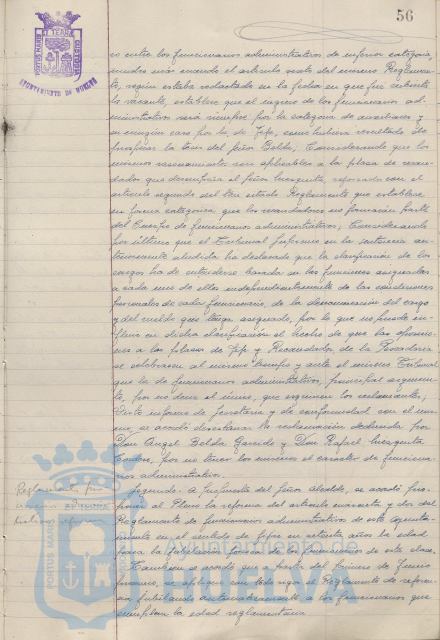 56
AYUNTAMIENTO DE HUELVA
co entre los funcionarios administrativos de inferior categoria,
mucho más cuando el artículo sexto del mismo Reglamen-
to, según estaba redactado en la fecha en que fue cubierta
la vacante, establece que el ingreso de los funcionarios ad-
ministrativos será siempre por la categoria de auxiliares y
en ningún caso por la de Jefe, como hubiera resultado de
prosperar la tesis del señor Belda; Considerando que los
mismos razonamientos son aplicables a la plaza de recau-
dador que desempeña el señor Mezquita, reforzada con el
artículo segundo del tan citado Reglamento que establece
en forma categórica que los recaudadores no formarán parte
del Cuerpo de funcionarios administrativos; Considerando
por último que el Tribunal Supremo en la sentencia an-
teriormente aludida ha declarado que la clasificación de los
cargos ha de entenderse basada en las funciones asignadas
a cada uno de ellos independientemente de las condiciones
personales de cada funcionario, de la denominación del cargo
y del sueldo que tenga asignado, por lo que no puede in-
fluir en dicha clasificación el hecho de que las oposicio-
nes a las plazas de Jefe y Recaudador de la Pescadería
se celebrasen al mismo tiempo y ante el mismo Tribunal
que la de funcionarios administrativos, principal argumen-
to, por no decir el único, que esgrimen los reclamantes;
Visto informe de Secretaria y de conformidad con el mis-
mo, se acordó desestimar la reclamación deducida por
Don Angel Belda Garrido y Don Rafael Mezquita
por no tener los mismos el caracter de funciona-
rios administrativos.
Reglamento fun
Segundo. A propuesta del señor Alcalde, se acordó pro-
poner al Pleno la reforma del artículo cuarenta y dos del
Reglamento de funcionarios administrativos de este Ayunta-
miento en el sentido de fijar en setenta años la edad
para la jubilación forzosa de los funcionarios de esta clase.
Tambien se acordó que a partir del primero de Enero
proximo, se aplique con todo rigor el Reglamento de referen-
cia jubilando automaticamente a los funcionarios que
cumplan la edad reglamentaria.
PORTUS MARIS ET TERRAE CUSTODIA
Ayuntamiento de
HUELVA